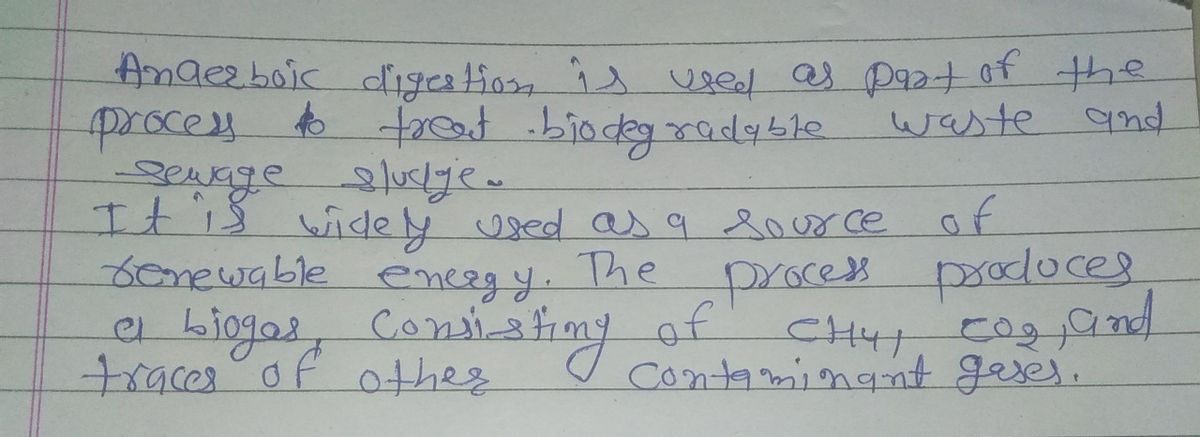 Anaerboic digestion is used as part of the
process to treat biodegradable waste and
sewage sludge.
It is widely used as a source of
renewable energy. The process produces
a biogas, Consisting of CH4, CO2, and
traces of other contaminant gases.